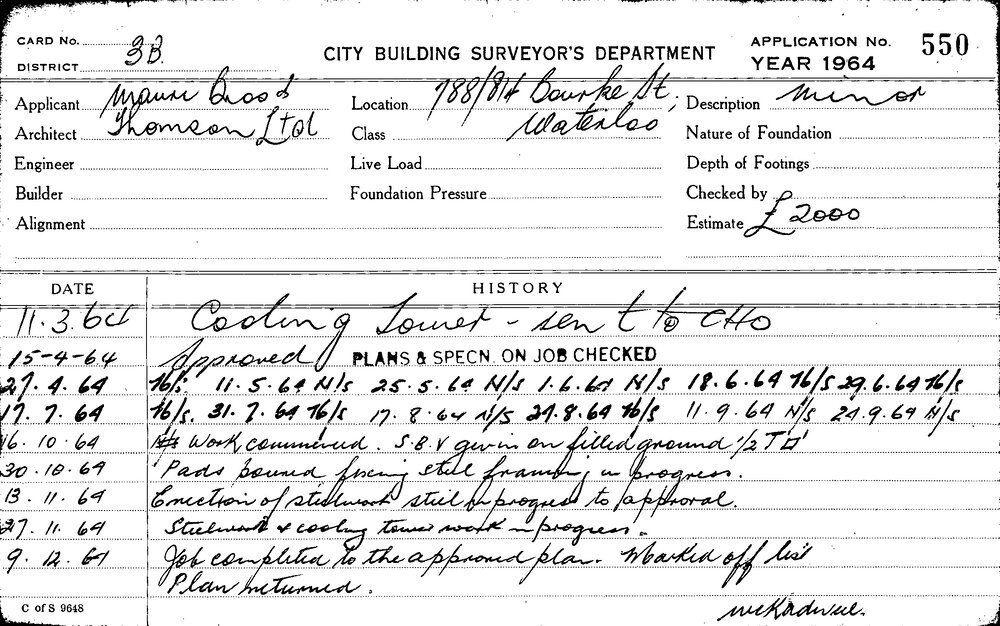 CARD No. 3B.
DISTRICT
CITY BUILDING SURVEYOR'S DEPARTMENT
APPLICATION No. 550
YEAR 1964
Applicant Mauri Bros &
Architect Thomson Ltd
Engineer
Builder
Alignment
Location 788/814 Bourke St,
Class Waterloo
Live Load
Foundation Pressure
Description Minor
Nature of Foundation
Depth of Footings
Checked by
Estimate £2000
DATE HISTORY
11.3.64 Cooling Tower - sent to CHO
15-4-64 Approved PLANS & SPECN. ON JOB CHECKED
27.4.64 N/s. 11.5.64 N/s 25.5.64 N/s 1.6.64 N/s 18.6.64 N/s 29.6.64 N/s
17.7.64 N/s. 31.7.64 N/s 17.8.64 N/s 27.8.64 N/s 11.9.64 N/s 24.9.64 N/s
16.10.64 N/s Work commenced. S.B.V given on filled ground 1/2 T □'
30.10.64 Pads poured fixing steel framing in progress.
13.11.64 Erection of steelwork still in progress to approval.
27.11.64 Steelwork & cooling tower work in progress.
9.12.64 Job completed to the approved plan. Marked off list
Plan returned.
C of S 9648